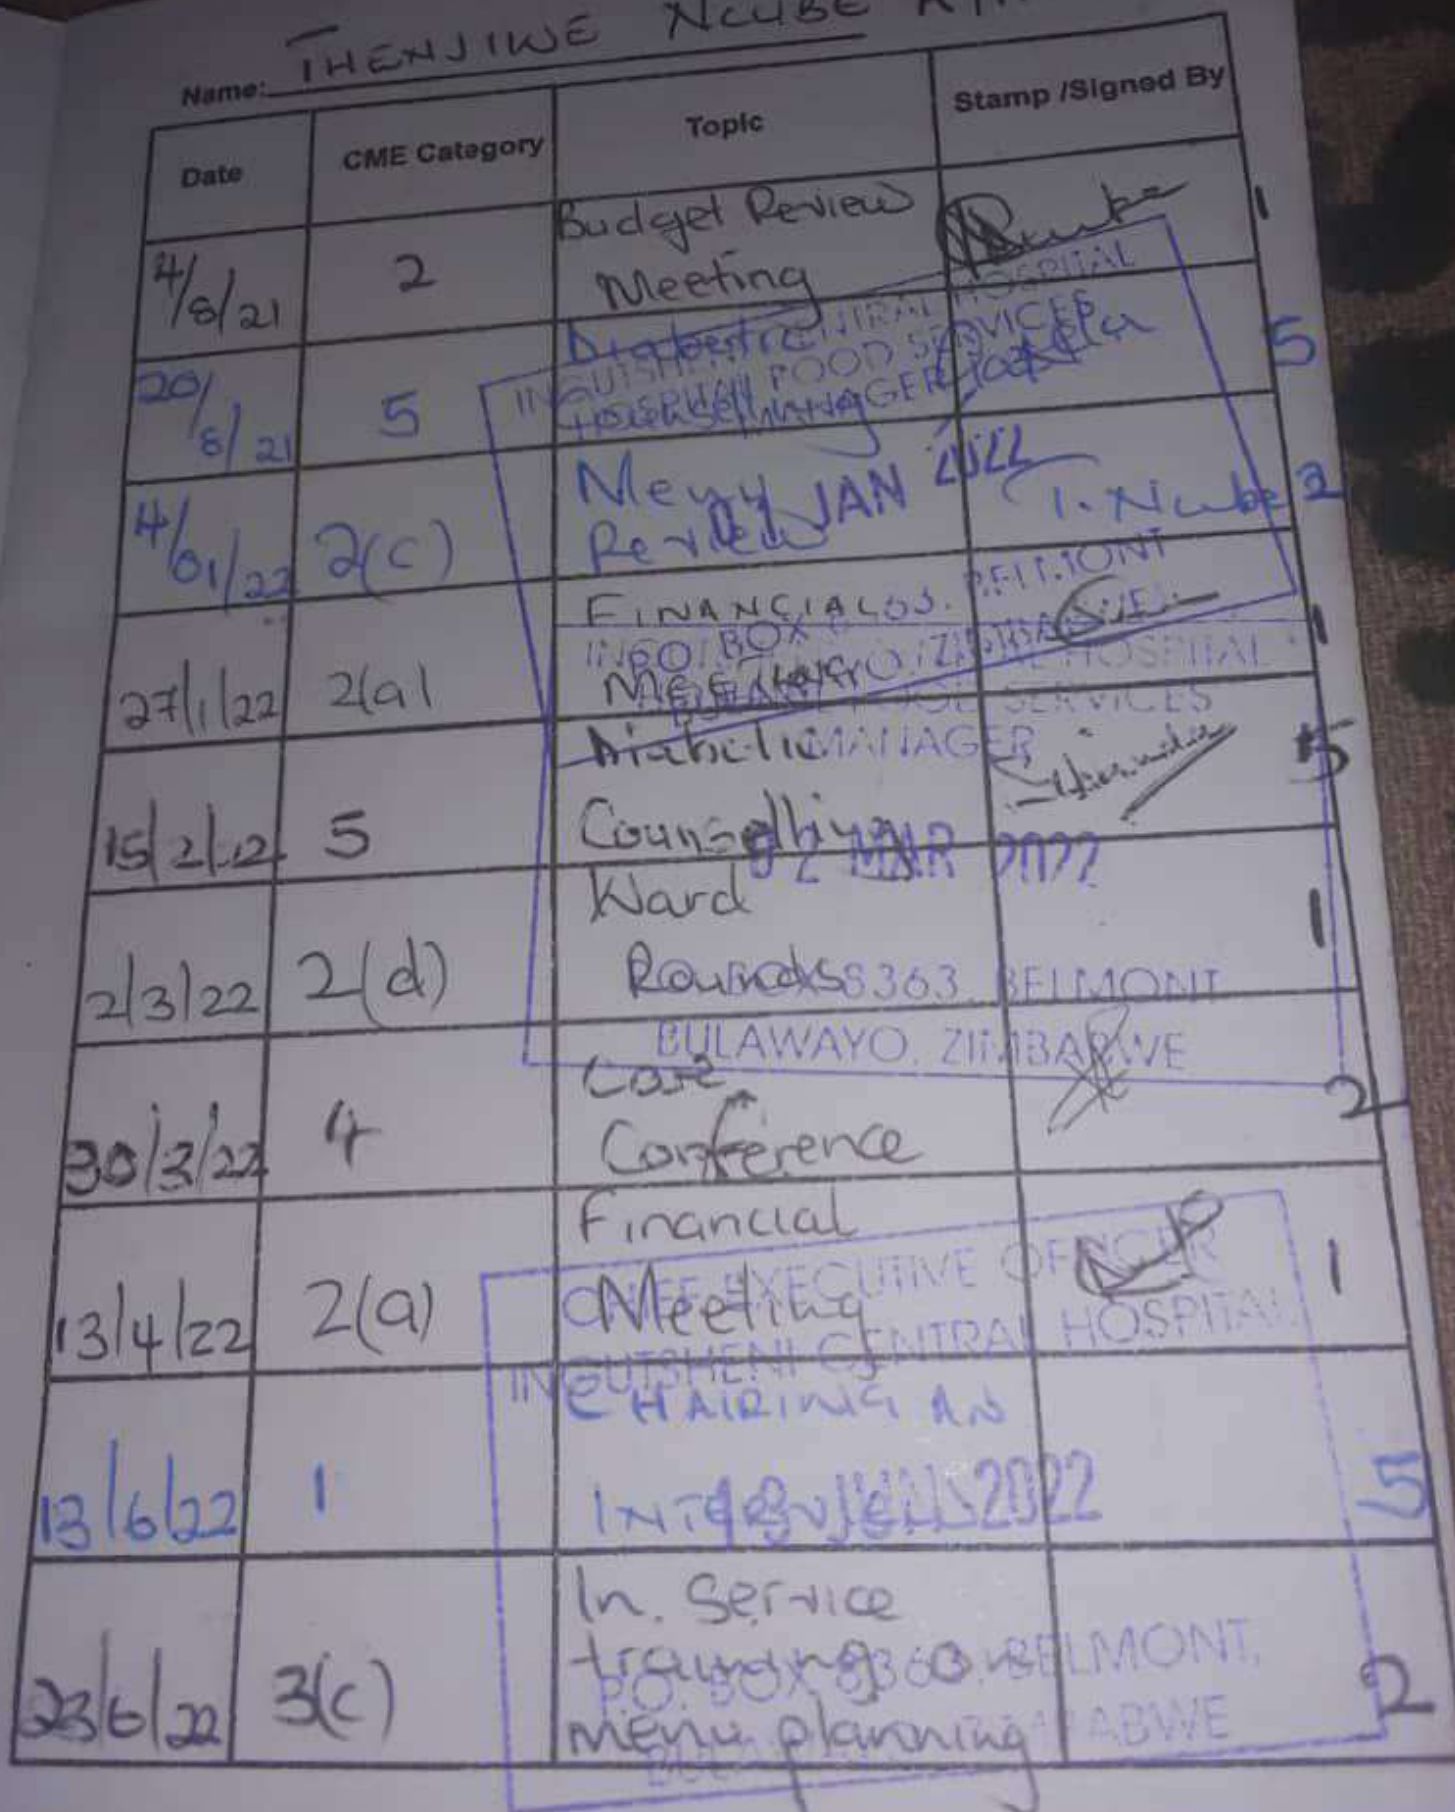 Name: THENJIWE NCUBE
Date CME Category Topic Stamp /Signed By
4/8/21 2 Budget Review Meeting 1
20/8/21 5 Diabetic Counselling 5
4/01/22 2(c) Menu Review T. Ncube 2
27/1/22 2(a) FINANCIAL MEETING 1
15/2/22 5 Diabetic Counselling 5
2/3/22 2(d) Ward Rounds 1
30/3/22 4 Case Conference 2
13/4/22 2(a) Financial Meeting 1
13/6/22 1 CHAIRING AN INTERVIEW 5
23/6/22 3(c) In. Service training on menu planning 2
INGUTSHENI CENTRAL HOSPITAL
HOSPITAL FOOD SERVICES
MANAGER
JAN 2022
BOX BELMONT
ZIMBABWE
HOSPITAL
FOOD SERVICES
MANAGER
02 MAR 2022
8363, BELMONT
BULAWAYO, ZIMBABWE
CHIEF EXECUTIVE OFFICER
INGUTSHENI CENTRAL HOSPITAL
2022
P.O. BOX 8363, BELMONT,